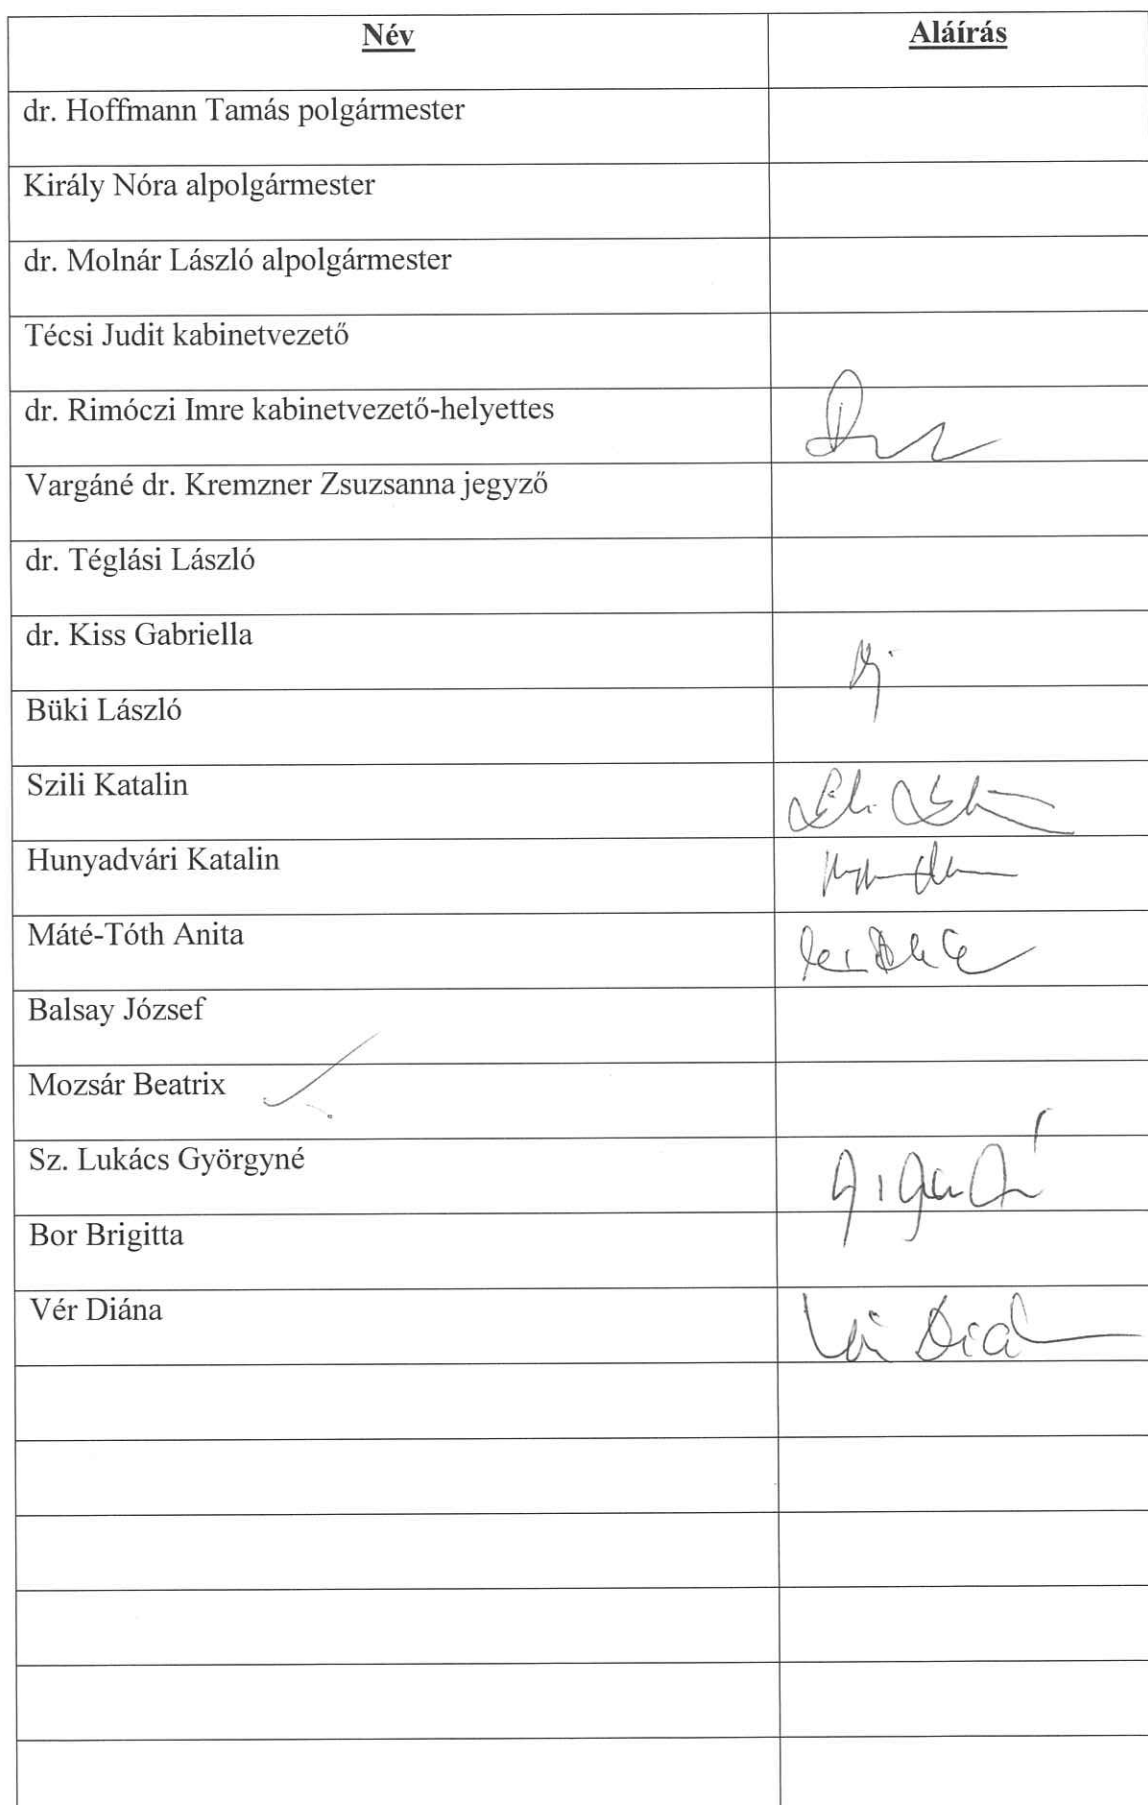 Név Aláírás
dr. Hoffmann Tamás polgármester
Király Nóra alpolgármester
dr. Molnár László alpolgármester
Técsi Judit kabinetvezető
dr. Rimóczi Imre kabinetvezető-helyettes
Vargáné dr. Kremzner Zsuzsanna jegyző
dr. Téglási László
dr. Kiss Gabriella
Büki László
Szili Katalin
Hunyadvári Katalin
Máté-Tóth Anita
Balsay József
Mozsár Beatrix
Sz. Lukács Györgyné
Bor Brigitta
Vér Diána